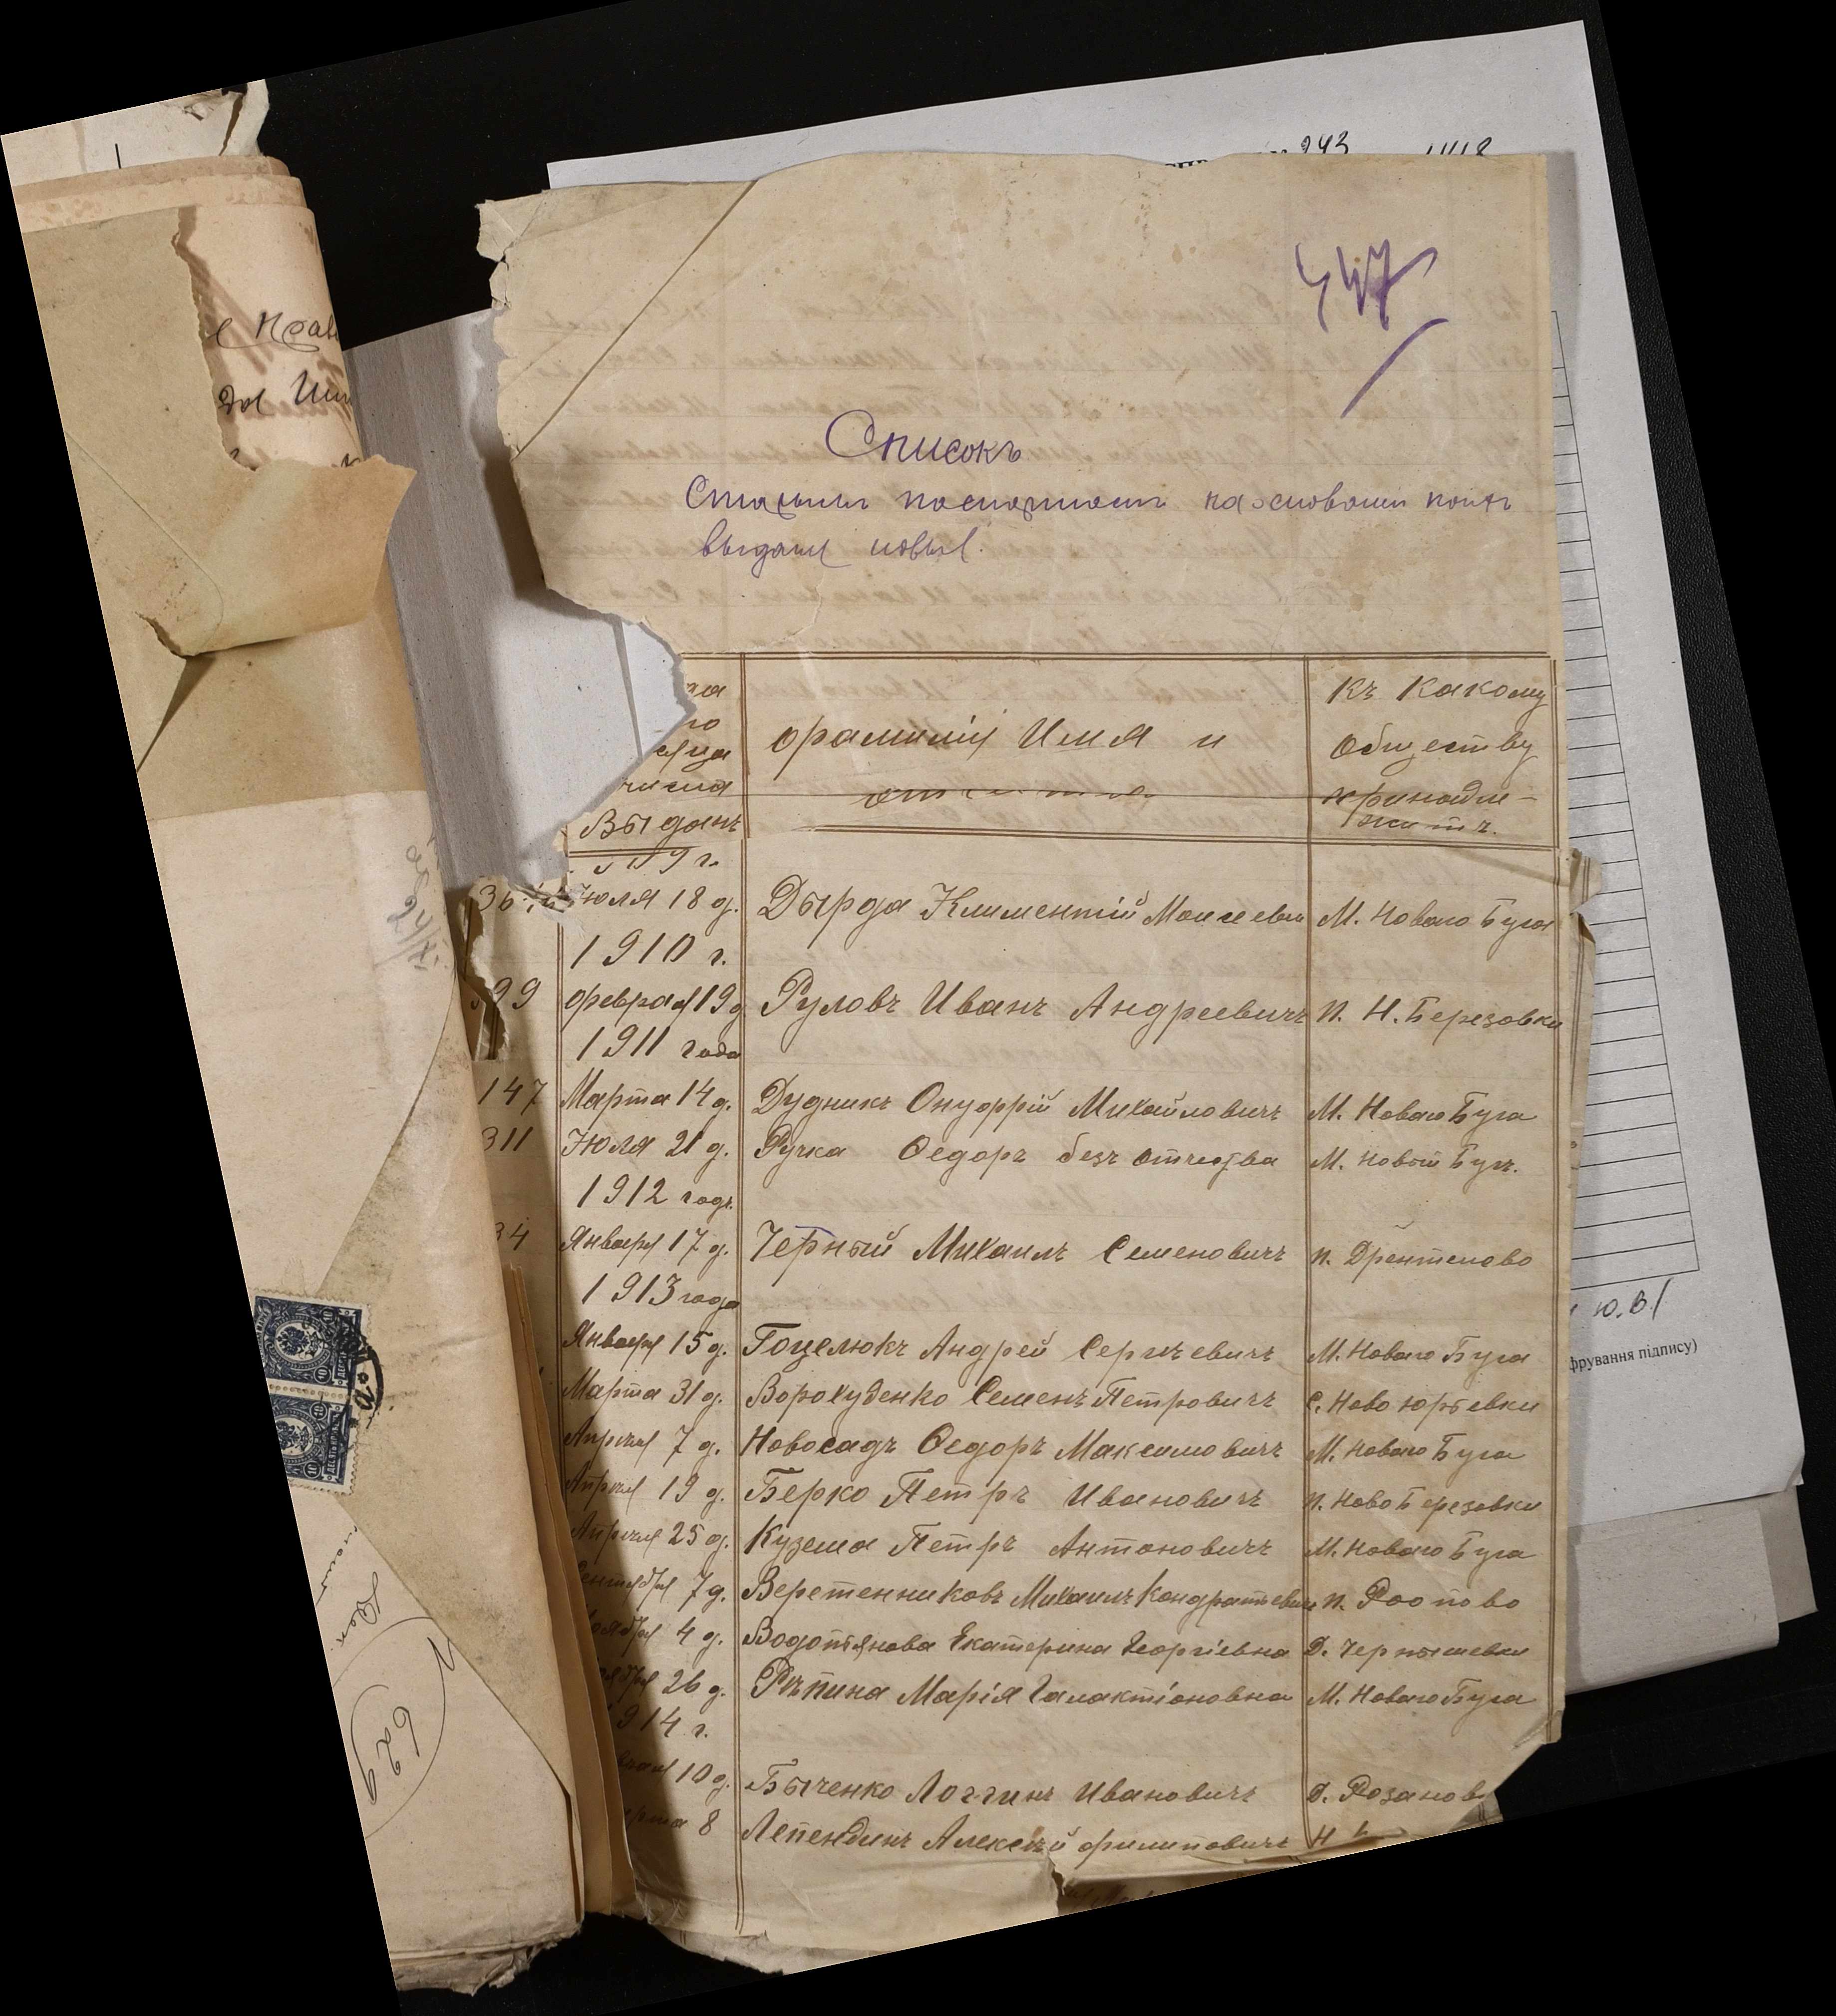 243
447
Списокъ
Старымъ паспортамъ на основаніи коихъ
выданы новые.
Къ Какому
Обществу
принадле-
житъ.
Фамилія Имя и
отчество
числа
Выданъ
Июля 18 д. Дырда Климентій Моисеевич М. Новаго Буга
1910 г.
99 Февраля 19 д Руловъ Иванъ Андреевичъ п. Н. Березовки
1911 года
147 Марта 14 д. Дудникъ Онуфрій Михайловичъ М. Новаго Буга
311 Июля 21 д. Ручка Ѳедоръ безъ отчества М. Новый Бугъ.
1912 годъ.
34 Января 17 д. Черный Михаилъ Семеновичъ п. Дрентелово
1913 года
Января 15 д. Гоцелюкъ Андрей Сергѣевичъ М. Новаго Буга
Марта 31 д. Ворохуденко Семенъ Петровичъ С. Ново Юрьевки
Апрѣля 7 д. Новосадъ Ѳедоръ Максимовичъ М. Новаго Буга
Апрѣля 19 д. Берко Петръ Ивановичъ п. Ново Березовки
Апрѣля 25 д. Кузема Петръ Антоновичъ М. Новаго Буга
Сентября 7 д. Веретенниковъ Михаилъ Кондратьевичъ п. Роопово
4 д. Водотянова Екатерина Георгіевна Д. Чернышевки
26 д. Рѣпина Марія Галактіоновна М. Новаго Буга
914 г.
10 д. Быченко Логгинъ Ивановичъ Д. Розанов
8 Лепендинъ Алексѣй Филиповичъ
629
Ю.В.
фрування підпису)